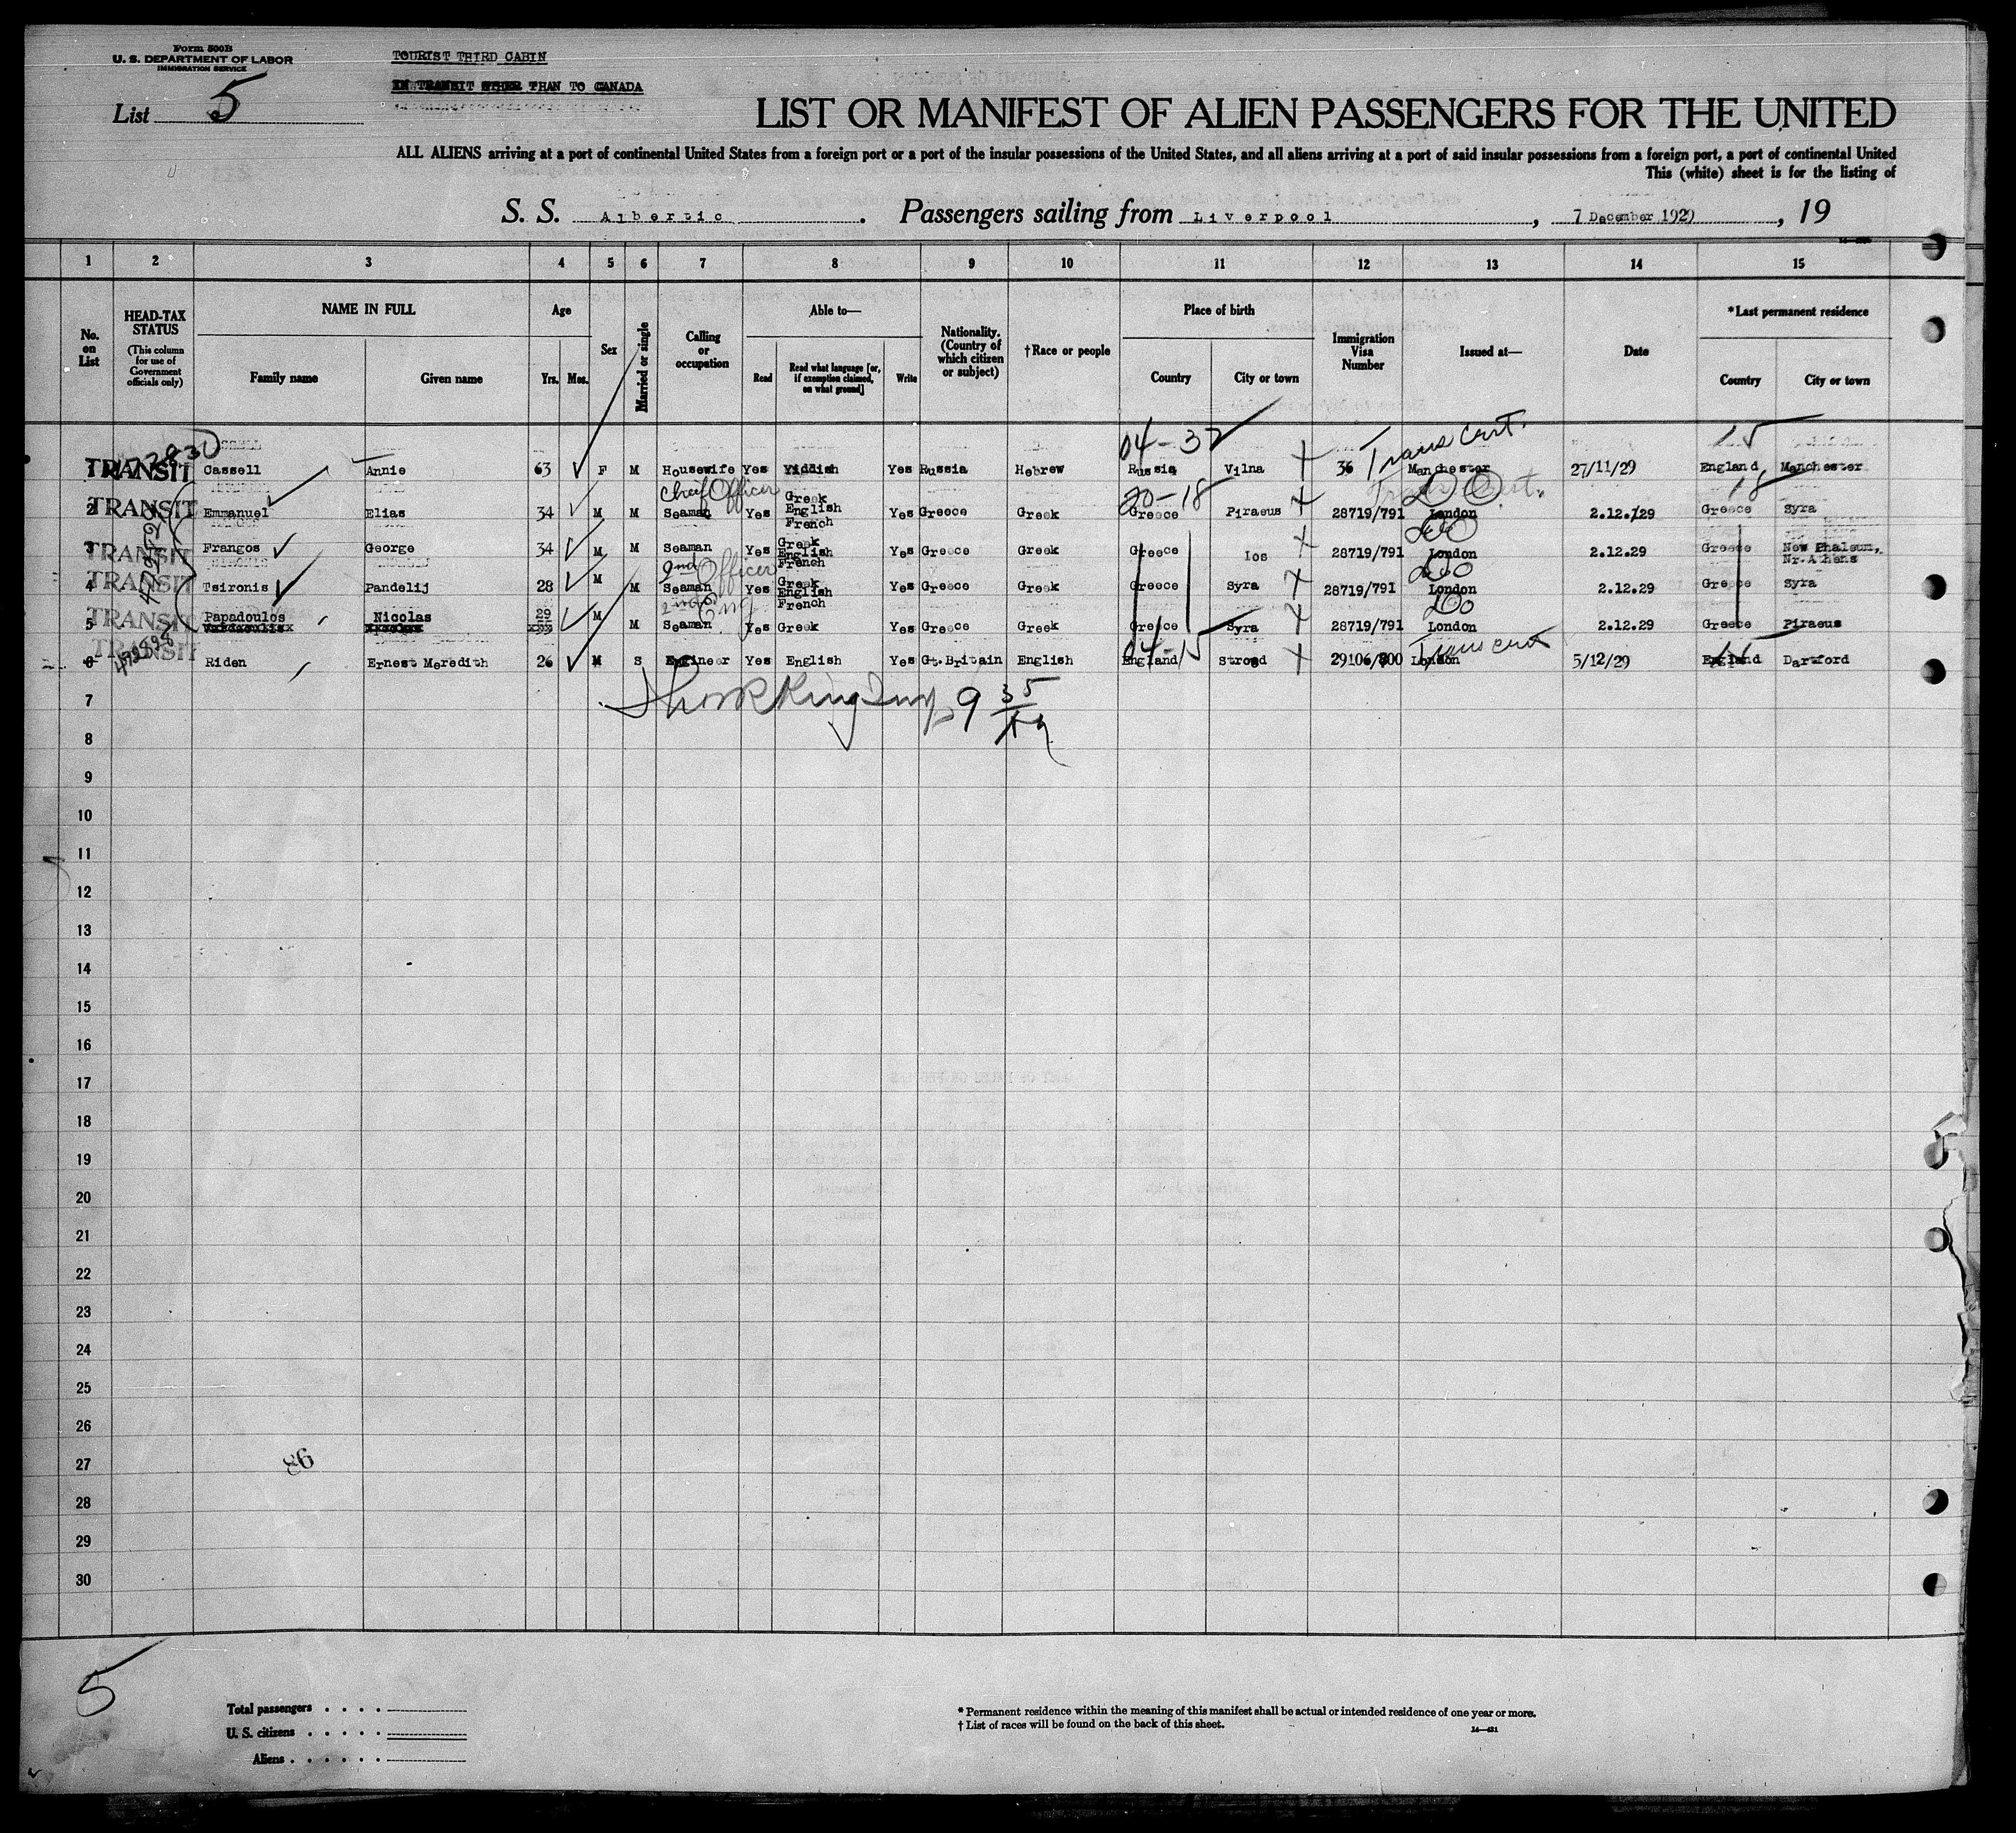 Form 500B
U. S. DEPARTMENT OF LABOR
IMMIGRATION SERVICE
TOURIST THIRD CABIN
IN TRANSIT OTHER THAN TO CANADA
List 5
LIST OR MANIFEST OF ALIEN PASSENGERS FOR THE UNITED
ALL ALIENS arriving at a port of continental United States from a foreign port or a port of the insular possessions of the United States, and all aliens arriving at a port of said insular possessions from a foreign port, a port of continental United
This (white) sheet is for the listing of
S. S. Albertic. Passengers sailing from Liverpool, 7 December 1929, 19
1 2 3 4 5 6 7 8 9 10 11 12 13 14 15
No. on List
HEAD-TAX STATUS
(This column for use of Government officials only)
NAME IN FULL
Family name Given name
Age
Yrs. Mos.
Sex
Married or single
Calling or occupation
Able to—
Read
Read what language [or, if exemption claimed, on what ground]
Write
Nationality. (Country of which citizen or subject)
†Race or people
Place of birth
Country City or town
Immigration Visa Number
Issued at—
Date
*Last permanent residence
Country City or town
04-32 Trans Cert. 15
1 TRANSIT Cassell Annie 63 F M Housewife Yes Yiddish Yes Russia Hebrew Russia Vilna 36 Manchester 27/11/29 England Manchester
Chief Officer 20-18 18
2 TRANSIT Emmanuel Elias 34 M M Seaman Yes Greek English French Yes Greece Greek Greece Piraeus 28719/791 London 2.12.29 Greece Syra
3 TRANSIT Frangos George 34 M M Seaman Yes Greek English French Yes Greece Greek Greece Ios 28719/791 London 2.12.29 Greece New Phaleum, Nr. Athens
2nd Officer
4 TRANSIT Tsironis Pandelij 28 M M Seaman Yes Greek English French Yes Greece Greek Greece Syra 28719/791 London 2.12.29 Greece Syra
2nd Eng
5 TRANSIT Papadoulos Nicolas 29 M M Seaman Yes Greek Yes Greece Greek Greece Syra 28719/791 London 2.12.29 Greece Piraeus
04-15 Trans cert
6 TRANSIT Riden Ernest Meredith 26 M S Engineer Yes English Yes Gt.Britain English England Strood 29106/800 London 5/12/29 England Dartford
7
8
9
10
11
12
13
14
15
16
17
18
19
20
21
22
23
24
25
26
27
28
29
30
93
5
Total passengers . . . .
U. S. citizens . . . . .
Aliens . . . . . .
* Permanent residence within the meaning of this manifest shall be actual or intended residence of one year or more.
† List of races will be found on the back of this sheet.